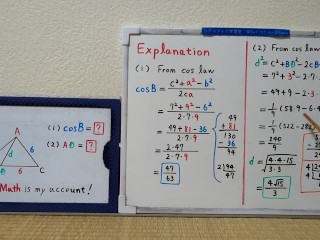 A
d
6
6
C
(1) cosB = ?
(2) AD = ?
Math is my account!
Explanation
(1) From cos law
cosB = c²+a²-b² / 2ca
= 7²+9²-6² / 2·7·9
= 49+81-36 / 2·7·9
= 2·47 / 2·7·9
= 47/63
49
+ 81
130
- 36
94
2)94
47
(2) From cos law
d² = c² + BD² - 2cB
= 7² + 3² - 2·7
= 49+9 - 2·3
= 1/9 (58·9 - 6·4
= 1/9 (522 - 28
= 240/9
d = √4·4·15 / √3·3
= 4√15 / 3